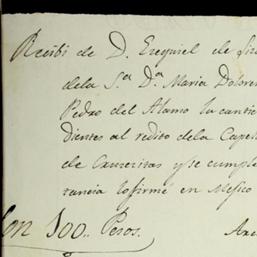 Recibi de D. Ezequiel de
dela S.ª D.ª Maria Dolores
Pedro del Alamo la canti
dientes al redito dela Capel
de Cruzeritas y se cumple
tancia lo firmé en Mexico
Son 500.. Pesos.